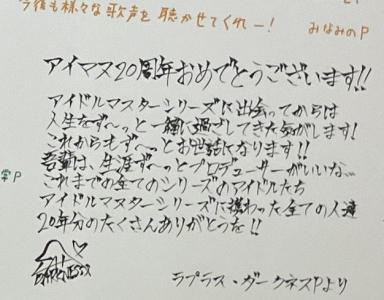 今後も様々な歌声を聴かせてくれー!
みなみのP
アイマス20周年おめでとうございます!!
アイドルマスターシリーズに出会ってからは
人生をず〜っと一緒に過ごしてきた気がします!
これからもず〜っとお世話になります!!
吾輩は、生涯ず〜っとプロデューサーがいいな…
これまでの全てのシリーズのアイドルたち
アイドルマスターシリーズに携わった全ての人達
20年分のたくさんありがとうを!!
ラプラス・ダークネスPより